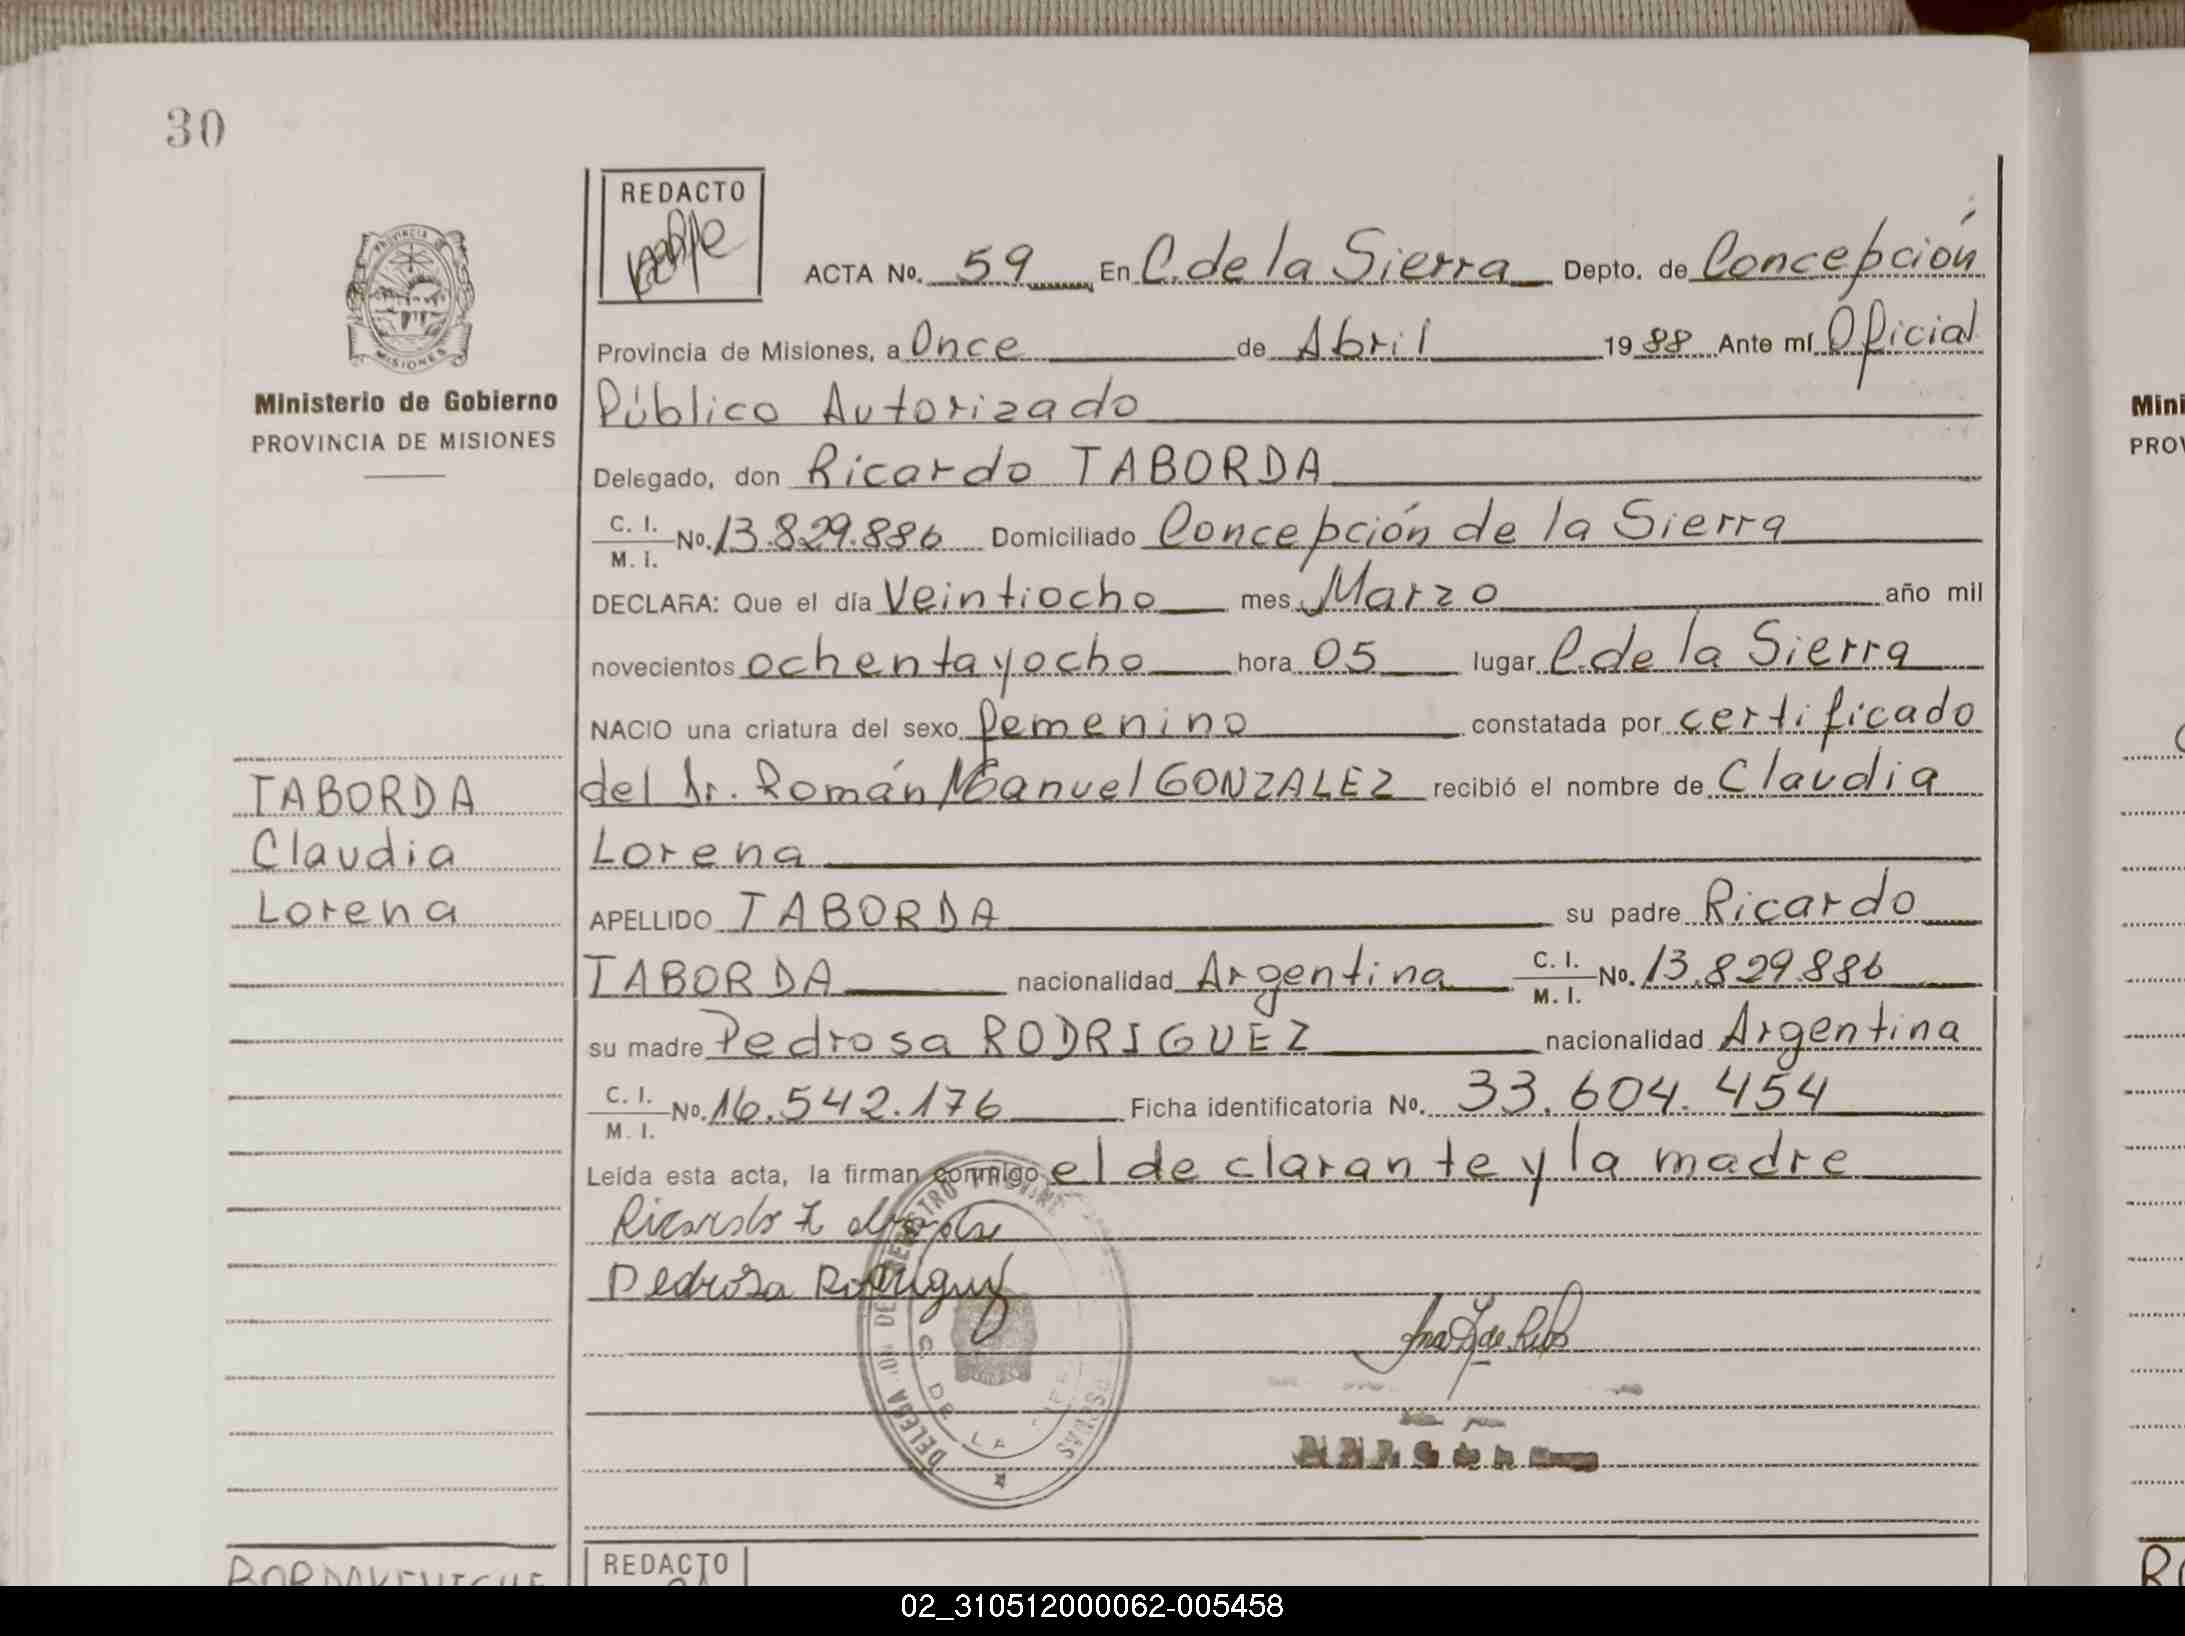 30
REDACTO
PROVINCIA DE
MISIONES
Ministerio de Gobierno
PROVINCIA DE MISIONES
ACTA No. 59 En C. de la Sierra Depto. de Concepción
Provincia de Misiones, a Once de Abril 1988 Ante mí Oficial
Público Autorizado
Delegado, don Ricardo TABORDA
C. I. M. I. No. 13.829.886 Domiciliado Concepción de la Sierra
DECLARA: Que el día Veintiocho mes Marzo año mil
novecientos ochenta y ocho hora 05 lugar C. de la Sierra
NACIO una criatura del sexo femenino constatada por certificado
del Dr. Román Manuel GONZALEZ recibió el nombre de Claudia
Lorena
APELLIDO TABORDA su padre Ricardo
TABORDA nacionalidad Argentina C. I. M. I. No. 13.829.886
su madre Pedrosa RODRIGUEZ nacionalidad Argentina
C. I. M. I. No. 16.542.176 Ficha identificatoria No. 33.604.454
Leída esta acta, la firman conmigo el declarante y la madre
TABORDA
Claudia
Lorena
Ricardo
Pedrosa Rodriguez
C. DE LA
REDACTO
Mini
PROV
02_310512000062-005458